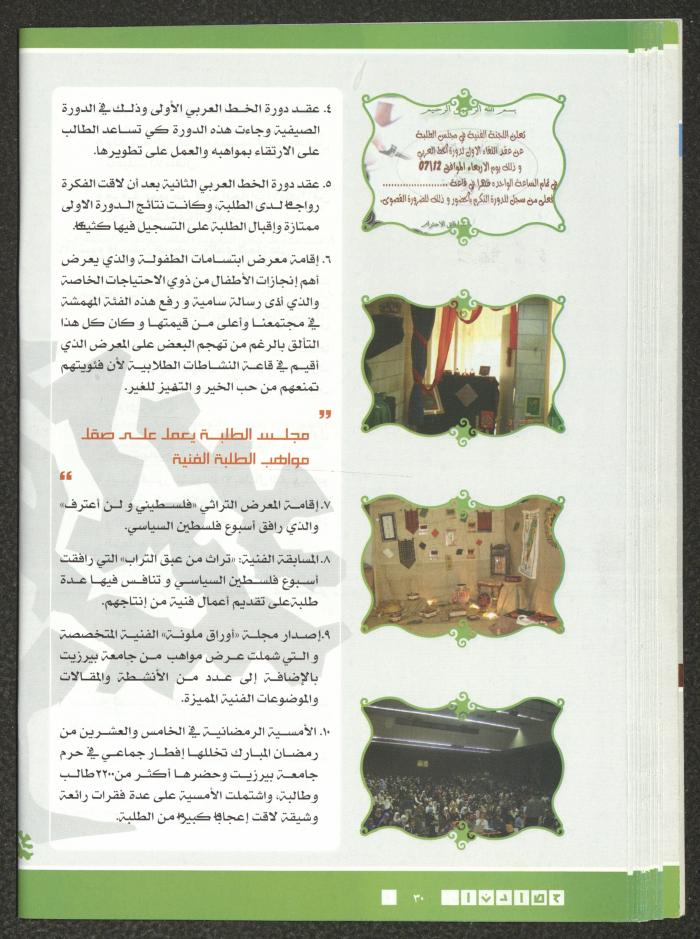 ٤. عقد دورة الخط العربي الأولى وذلك في الدورة
الصيفية وجاءت هذه الدورة كي تساعد الطالب
على الارتقاء بمواهبه والعمل على تطويرها.
٥. عقد دورة الخط العربي الثانية بعد أن لاقت الفكرة
رواجها لدى الطلبة، وكانت نتائج الدورة الاولى
ممتازة وإقبال الطلبة على التسجيل فيها كثيفا.
٦. إقامة معرض ابتسامات الطفولة والذي يعرض
أهم إنجازات الأطفال من ذوي الاحتياجات الخاصة
والذي أدى رسالة سامية و رفع هذه الفئة المهمشة
في مجتمعنا وأعلى من قيمتها و كان كل هذا
التألق بالرغم من تهجم البعض على المعرض الذي
أقيم في قاعة النشاطات الطلابية لأن فئويتهم
تمنعهم من حب الخير و التميز للغير.
”
مجلس الطلبة يعمل على صقل
مواهب الطلبة الفنية
“
٧. إقامة المعرض التراثي «فلسطيني و لن أعترف»
والذي رافق أسبوع فلسطين السياسي.
٨. المسابقة الفنية: «تراث من عبق التراب» التي رافقت
أسبوع فلسطين السياسي و تنافس فيها عدة
طلبة على تقديم أعمال فنية من إنتاجهم.
٩. إصدار مجلة «أوراق ملونة» الفنية المتخصصة
و التي شملت عرض مواهب من جامعة بيرزيت
بالإضافة إلى عدد من الأنشطة والمقالات
والموضوعات الفنية المميزة.
١٠. الأمسية الرمضانية في الخامس والعشرين من
رمضان المبارك تخللها إفطار جماعي في حرم
جامعة بيرزيت وحضرها أكثر من ٢٢٠٠ طالب
وطالبة، واشتملت الأمسية على عدة فقرات رائعة
وشيقة لاقت إعجابا كبيرا من الطلبة.
بسم الله الرحمن الرحيم
تعلن اللجنة الفنية في مجلس الطلبة
عن عقد اللقاء الاول لدورة الخط العربي
و ذلك يوم الاربعاء الموافق 07\12
في تمام الساعة الواحدة ظهرا في قاعة ....................
فعلى من سجل للدورة التكرم بالحضور و ذلك للضرورة القصوى.
الاحترام
٣٠